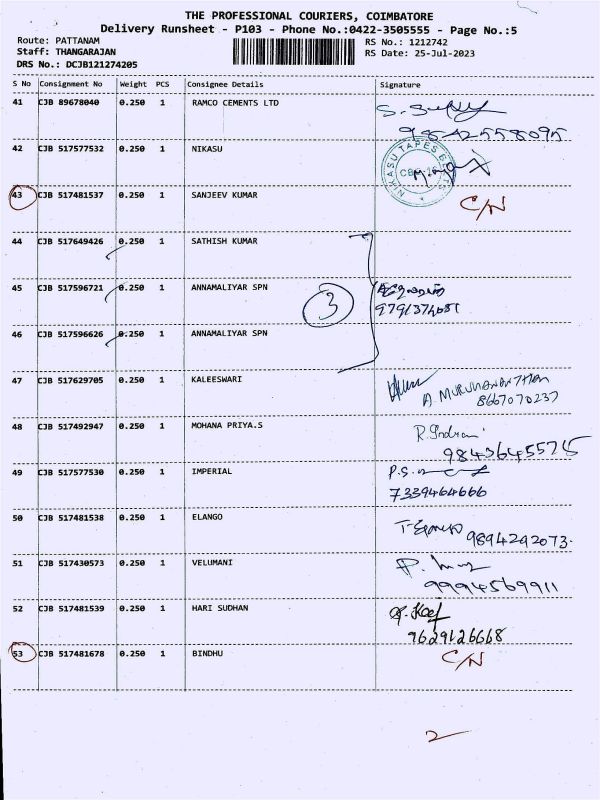 THE PROFESSIONAL COURIERS, COIMBATORE
Delivery Runsheet - P103 - Phone No.:0422-3505555 - Page No.:5
Route: PATTANAM
Staff: THANGARAJAN
DRS No.: DCJB121274205
RS No.: 1212742
RS Date: 25-Jul-2023
S No Consignment No Weight PCS Consignee Details Signature
41 CJB 89678040 0.250 1 RAMCO CEMENTS LTD
9842558095
42 CJB 517577532 0.250 1 NIKASU
NIKASU TAPES
43 CJB 517481537 0.250 1 SANJEEV KUMAR C/N
44 CJB 517649426 0.250 1 SATHISH KUMAR
45 CJB 517596721 0.250 1 ANNAMALIYAR SPN 3
46 CJB 517596626 0.250 1 ANNAMALIYAR SPN
47 CJB 517629705 0.250 1 KALEESWARI
A. MURUHANANTHAN
8667070237
48 CJB 517492947 0.250 1 MOHANA PRIYA.S
R. Indrani
49 CJB 517577530 0.250 1 IMPERIAL
7339464666
50 CJB 517481538 0.250 1 ELANGO
9894292073.
51 CJB 517430573 0.250 1 VELUMANI
9994569911
52 CJB 517481539 0.250 1 HARI SUDHAN
9629126668
53 CJB 517481678 0.250 1 BINDHU C/N
2